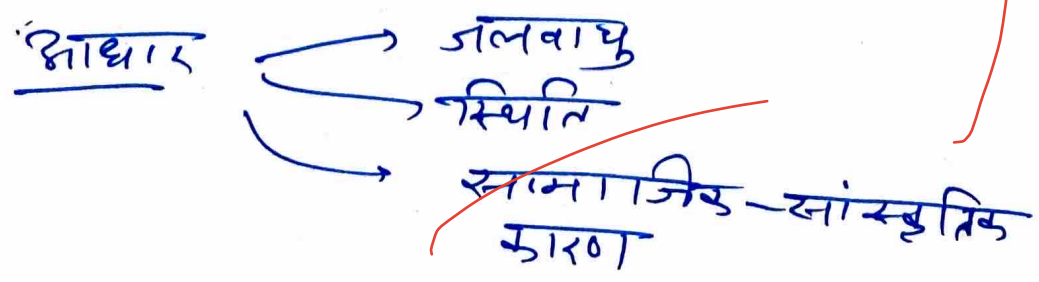 आधार
जलवायु
स्थिति
सामाजिक-सांस्कृतिक
कारण